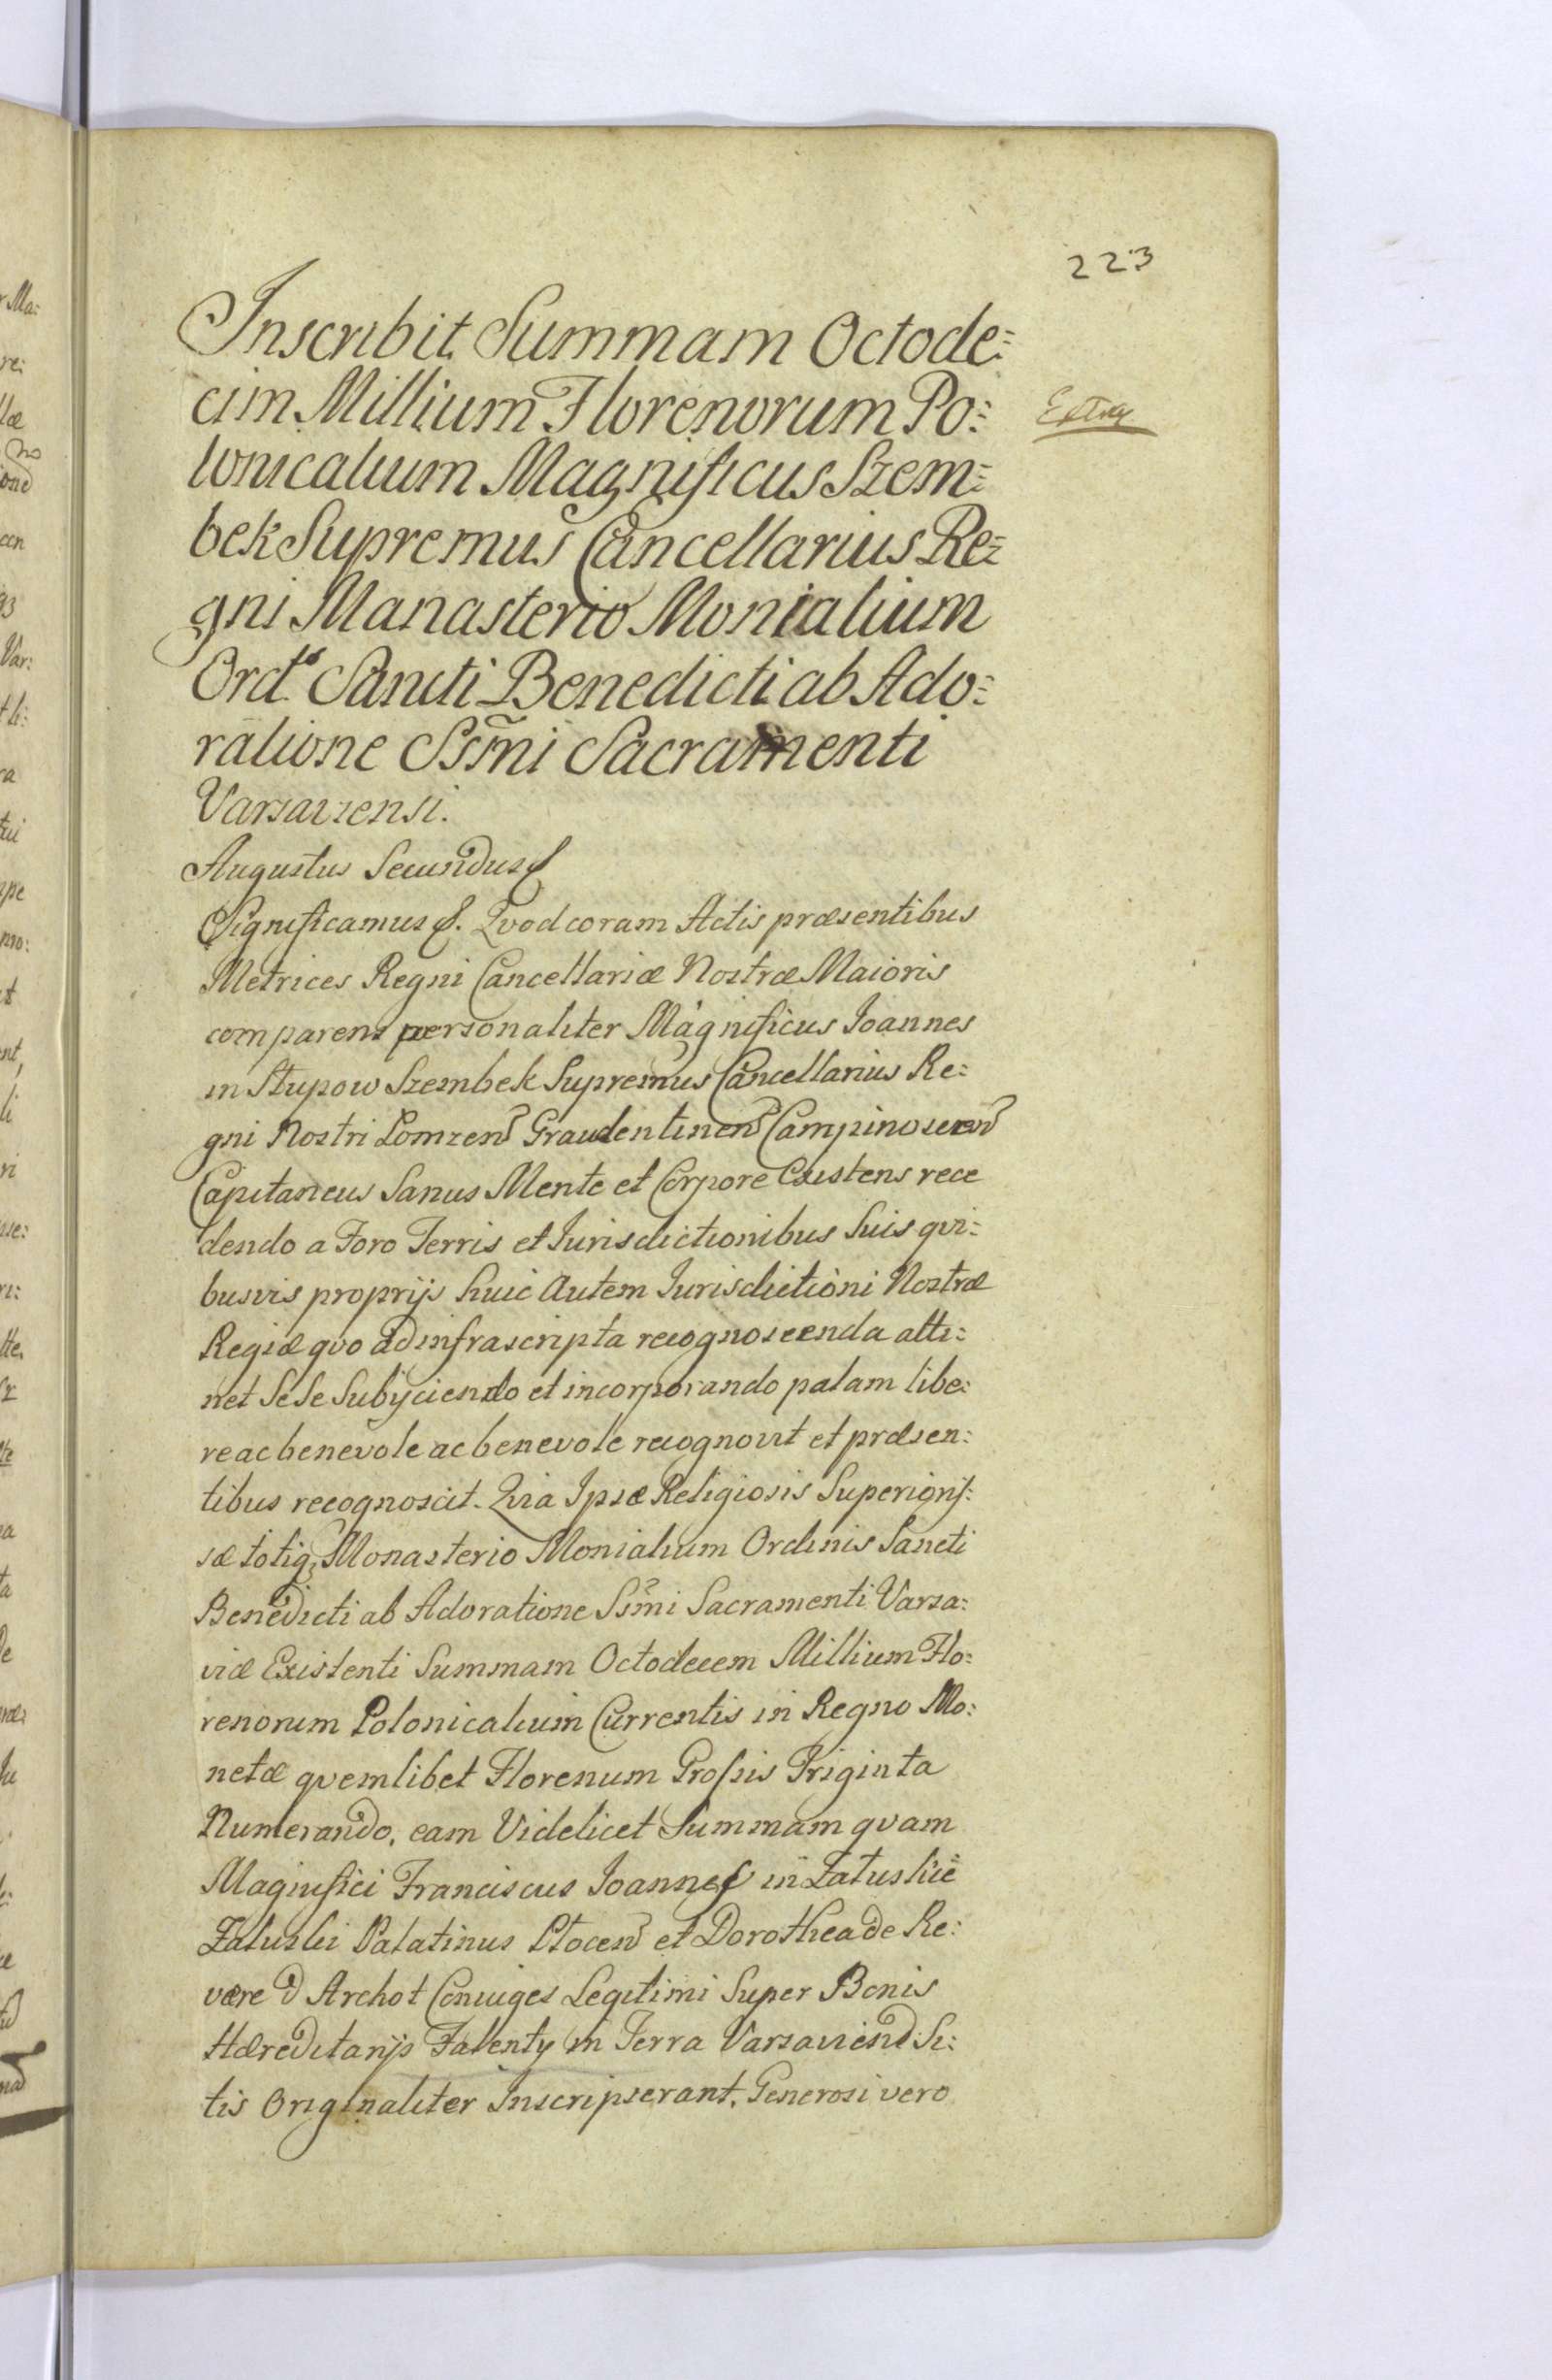 223
Inscribit Summam Octode:
cim Millium Florenorum Po:
lonicalium Magnificus Szem:
bek Supremus Cancellarius Re:
gni Manasterio Monialium
Ord: Sancti Benedicti ab Ado:
ratione Ssmi Sacramenti
Varsaviensi.
Augustus Secundus
Significamus. Qvod coram Actis præsentibus
Metrices Regni Cancellariæ Nostræ Maioris
comparens personaliter Magnificus Joannes
in Słupow Szembek Supremus Cancellarius Re:
gni Nostri Lomzen Graudentinen Campinoscen
Capitaneus Sanus Mente et Corpore Existens rece
dendo a Foro Terris et Jurisdictionibus Suis qvi:
busvis proprijs huic autem Jurisdictioni Nostræ
Regiæ qvo ad infrascripta recognoscenda atti:
net Se Se Subijciendo et incorporando palam libe:
re ac benevole ac benevole recognovit et præsen:
tibus recognoscit. Qvia Ipse Religiosis Superioris:
sæ totiq, Monasterio Monialium Ordinis Sancti
Benedicti ab Adoratione Ssmi Sacramenti Varsa:
viæ Existenti Summam Octodecem Millium Flo:
renorum Polonicalium Currentis in Regno Mo:
netæ qvemlibet Florenum Grossis Triginta
Numerando, eam Videlicet Summam qvam
Magnifici Franciscus Joannes in Załuskie
Załuski Palatinus Plocen et Dorothea de Re:
vere d Archot Coniuges Legitimi Super Bonis
Hæreditarijs Falenty in Terra Varsavien Si:
tis Originaliter Inscripserant, Generosi vero